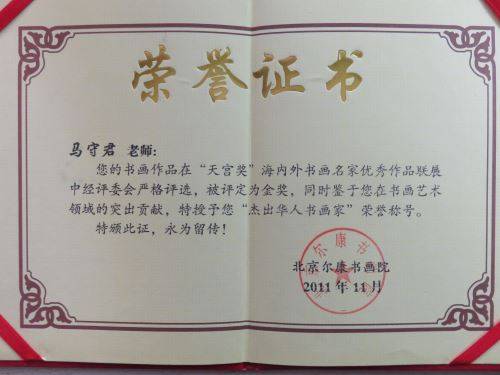 荣誉证书
马守君 老师：
您的书画作品在“天宫奖”海内外书画名家优秀作品联展
中经评委会严格评选，被评定为金奖，同时鉴于您在书画艺术
领域的突出贡献，特授予您“杰出华人书画家”荣誉称号。
特颁此证，永为留传！
北京尔康书画院
2011年11月